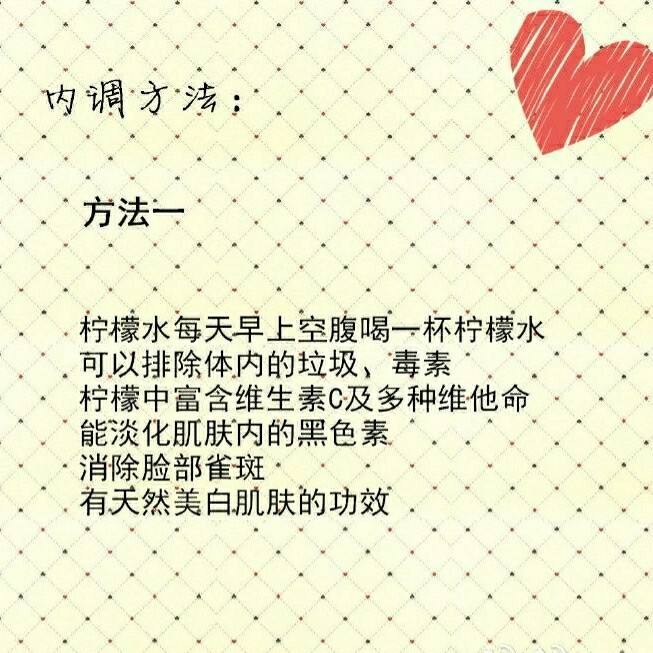 内调方法：
方法一
柠檬水每天早上空腹喝一杯柠檬水
可以排除体内的垃圾、毒素
柠檬中富含维生素C及多种维他命
能淡化肌肤内的黑色素
消除脸部雀斑
有天然美白肌肤的功效